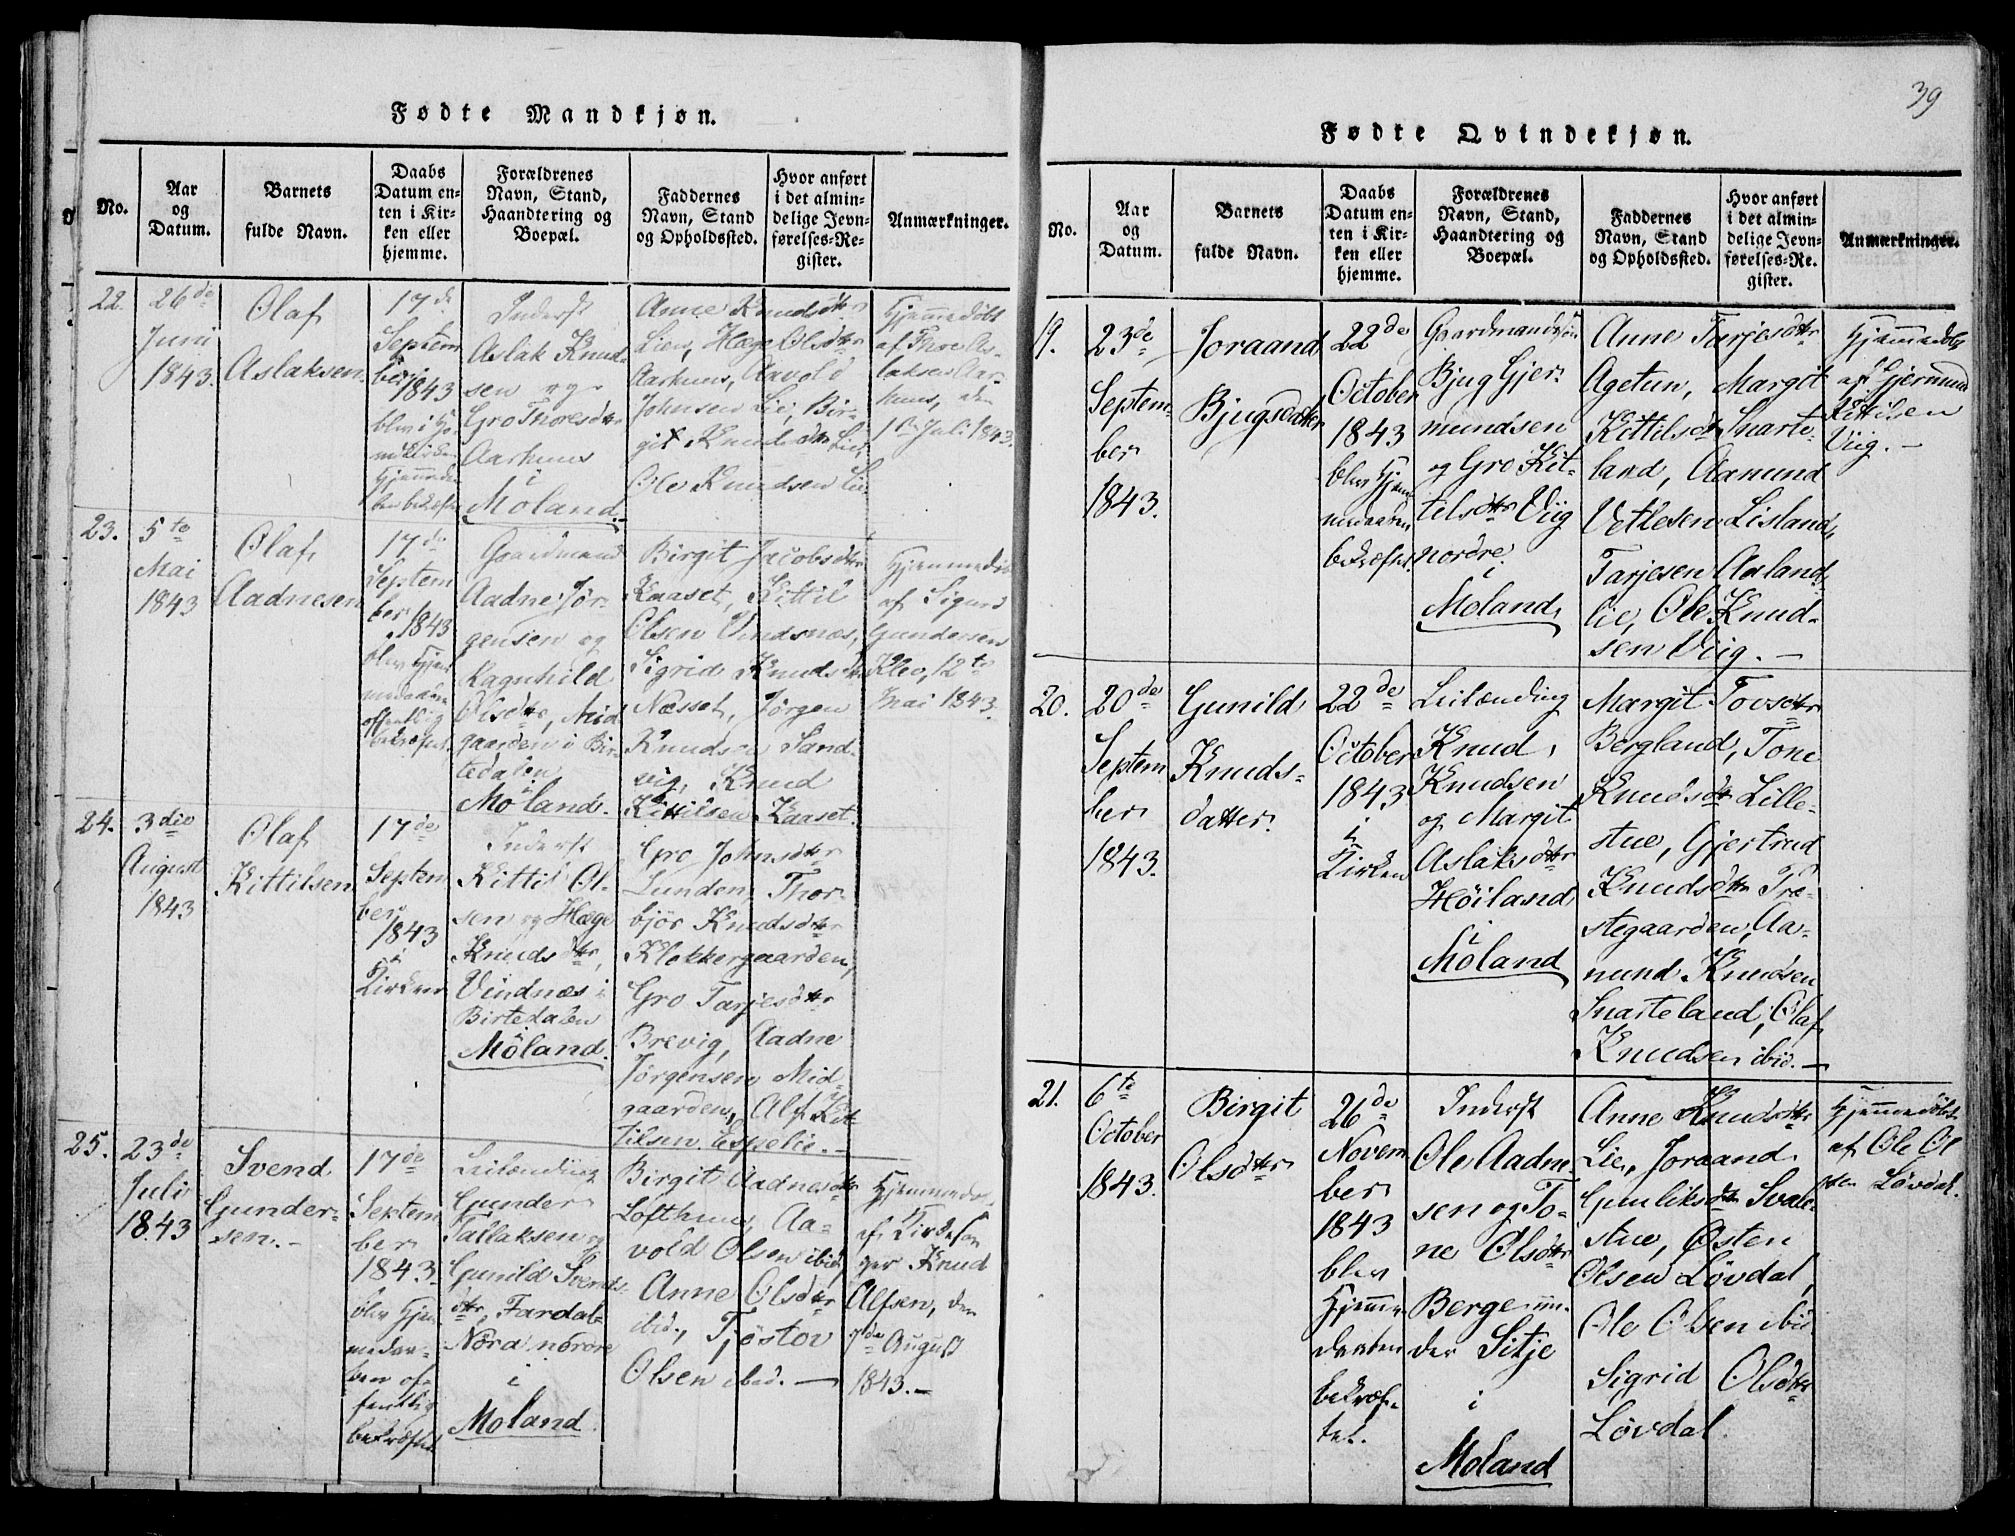 39
Fødte Mandkjøn.
No.
Aar
og
Datum.
Barnets
fulde Navn.
Daabs
Datum en-
ten i Kir-
ken eller
hjemme.
Forældrenes
Navn, Stand,
Haandtering og
Boepæl.
Faddernes
Navn, Stand
og Opholdssted.
Hvor anført
i det almin-
delige Jevn-
førelses-Re-
gister.
Anmærkninger.
22.
26de
Juni
1843.
Olaf
Aslaksen
17de
Septem
ber
1843
blev i
Inderst
Aslak Knud-
sen og
Gro Thoresdtr
Aarhuus
i
Moland.
Anne Knudsdtr
Lien, Hæge Olsdtr
Aarhuus, Aavold
Johnsen Lie, Bir-
git Knudsdtr Lie,
Ole Knudsen Lie
Hjemmedøbt
af Thore As-
laksen Aar-
huus, den
1ste Juli 1843.
23.
5te
Mai
1843
Olaf
Aadnesen
17de
Septem
ber
1843
blev Hjem
medaaben
offentlig
bekræftet.
Gaardmand
Aadne Jør-
gensen og
Ragnhild
Olsdtr, Mid
gaarden i Bir-
tedalen
i
Moland.
Birgit Jacobsdtr
Kaaset, Kittil
Olsen Vindsnæs,
Sigrid Knudsdtr
Næsset, Jørgen
Knudsen Sand-
vig, Knud
Kittilsen Kaaset.
Hjemmedøbt
af Sigurd
Gundersen
Klev, 12te
Mai 1843.
24.
3die
August
1843
Olaf
Kittilsen
17de
Septem
ber
1843
i
Kirken
Inderst
Kittil Ol-
sen og Hæge
Knudsdtr,
Vindnæs i
Birtedalen
i
Moland.
Gro Johnsdtr
Lunden, Thor-
bjør Knudsdtr
Klokkergaarden,
Gro Tarjesdtr
Brevig, Aadne
Jørgensen Mid-
gaarden, Alf Kit-
tilsen Espelie.-
25.
23de
Juli
1843
Svend
Gunder-
sen.-
17de
Septem
ber
1843.
blev Hjem
medaa-
ben of-
fentlig
bekræftet
Leilænding
Gunder
Tallaksen og
Gunild Svends-
dtr, Fardal-
Nora nordre
i
Moland
Birgit Aadnesdtr
Lofthuus, Aa-
vold Olsen ibid,
Anne Olsdtr
ibid., Tjøstov
Olsen ibid.—
Hjemmedøbt
af Kirkesan
ger Knud
Alfsen, den
7de August
1843.-
Fødte Qvindekjøn.
No.
Aar
og
Datum.
Barnets
fulde Navn.
Daabs
Datum en-
ten i Kir-
ken eller
hjemme.
Forældrenes
Navn, Stand,
Haandtering og
Boepæl.
Faddernes
Navn, Stand
og Opholdssted.
Hvor anført
i det almin-
delige Jevn-
førelses-Re-
gister.
Anmærkninger.
19.
23de
Septem-
ber
1843.
Joraand
Bjugsdatter
22de
October
1843
blev Hjem
medaaben
bekræftet.
Gaardmandssøn
Bjug Gjer-
mundsen
og Gro Kit-
telsdtr Viig
nordre
i
Moland,
Anne Tarjesdtr
Agetun, Margit
Kittilsdtr Snarte-
land, Aamund
Vetlesen Lisland,
Tarjesen Aaland-
lie, Ole Knud-
sen Viig.—
Hjemmedøbt
af Gjermund
Kittilsen
Viig.—
20.
20de
Septem
ber
1843.
Gunild
Knuds-
datter.
22de
October
1843
i
Kirken
Leilænding
Knud
Knudsen
og Margit
Aslaksdtr
Høiland
i
Moland
Margit Tovsdtr
Bergland, Tone
Knudsdtr Lille-
stue, Gjertrud
Knudsdtr Præ-
stegaarden, Aa-
mund Knudsen
Snarteland, Olaf
Knudsen ibid.—
21.
6te
October
1843.
Birgit
Olsdtr
26de
Novem
ber
1843
blev
Hjemme-
daaben
bekræf-
tet.
Inderst
Ole Aadne-
sen og To-
ne Olsdtr
Berge un-
der Sitje
i
Moland
Anne Knudsdtr
Lie, Joraand
Gunliksdtr Svale-
stue, Østen
Olsen Løvdal,
Ole Olsen ibid
Sigrid Olsdtr
Løvdal.
Hjemmedøbt
af Ole Ol
sen Løvdal.